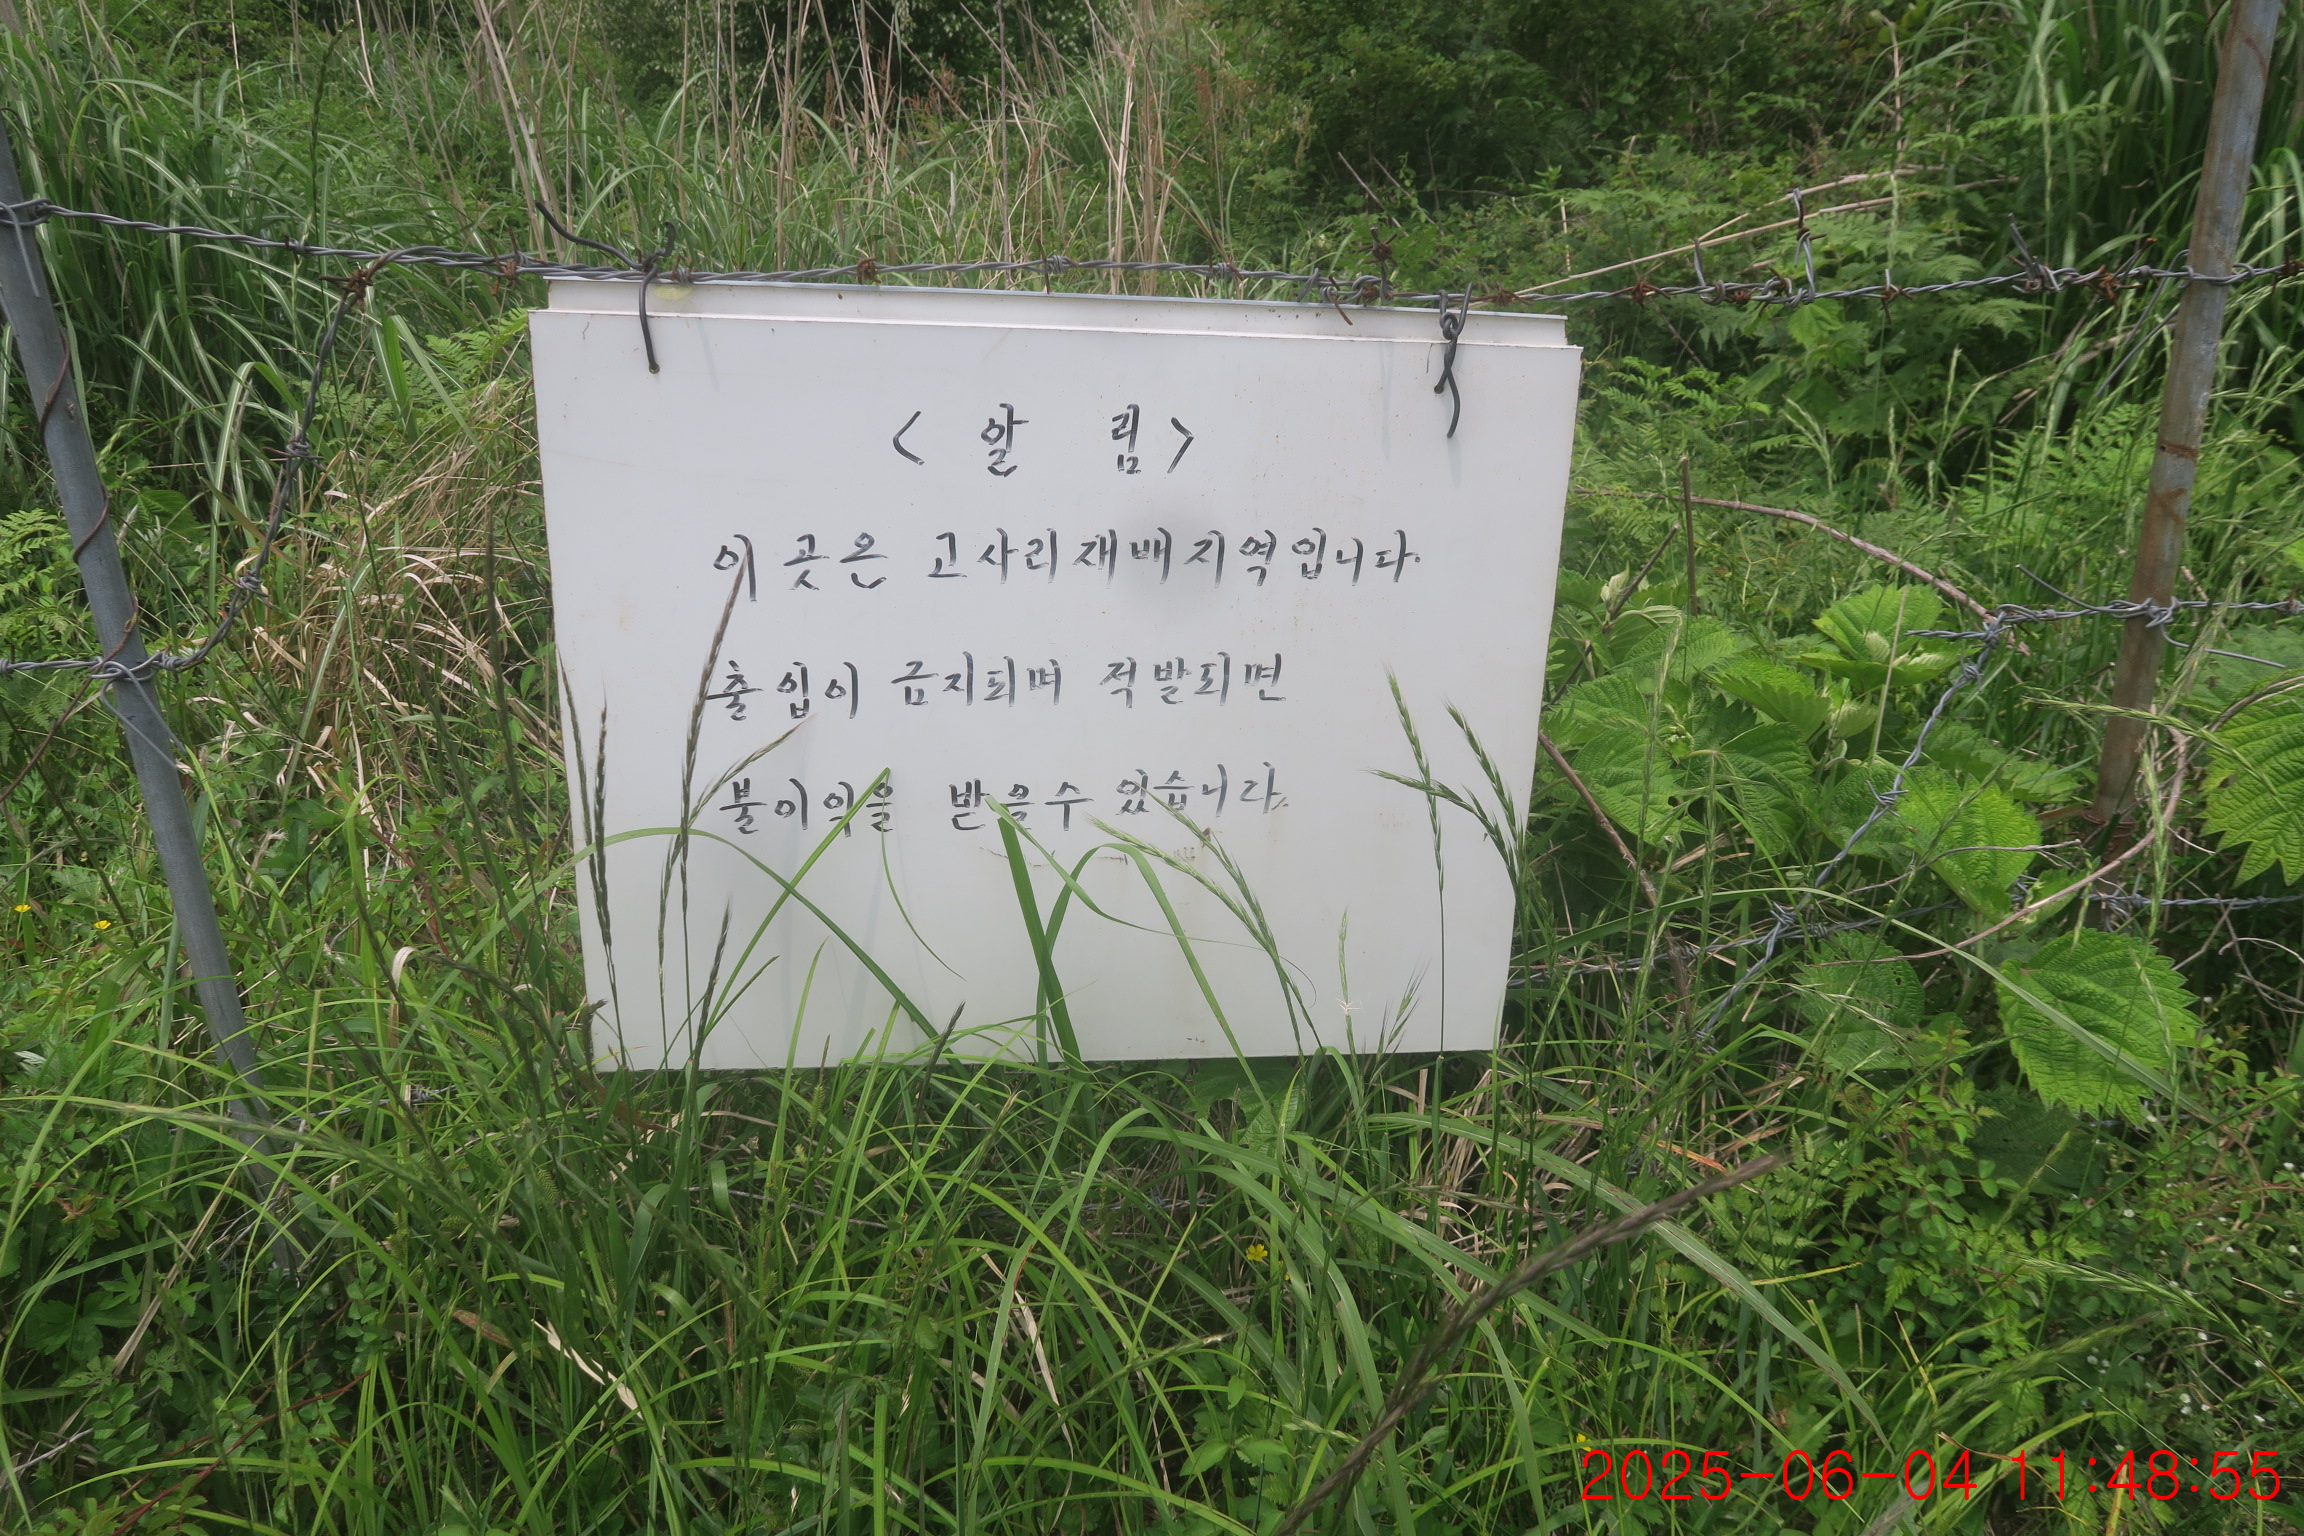 < 알 림 >
이 곳은 고사리재배지역입니다.
출입이 금지되며 적발되면
불이익을 받을수 있습니다.
2025-06-04 11:48:55